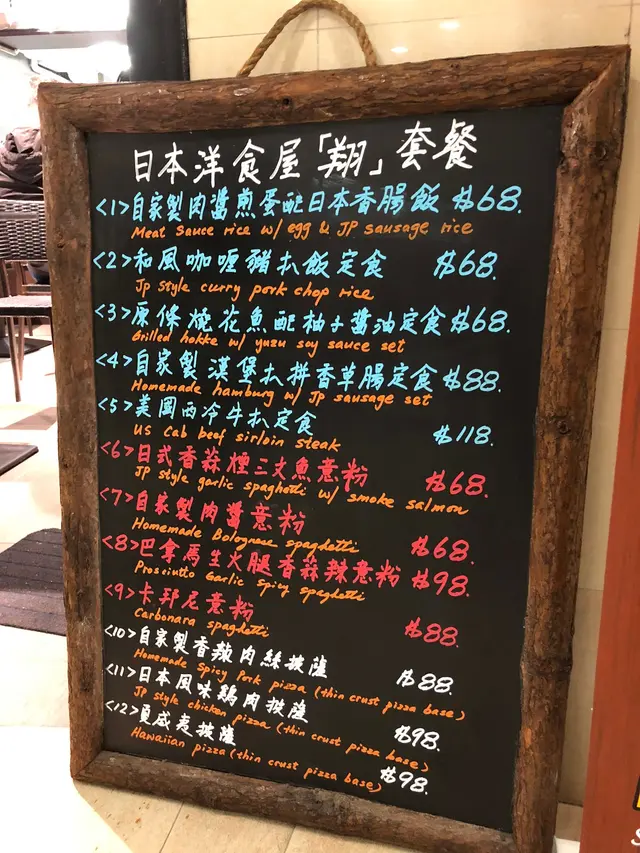 日本洋食屋「翔」套餐
<1>自家製肉醬煎蛋配日本香腸飯 $68.
Meat Sauce rice w/ egg & JP sausage rice
<2>和風咖喱豬扒飯定食 $68.
Jp style curry pork chop rice
<3>原條燒花魚配柚子醬油定食 $68.
Grilled hokke w/ yuzu soy sauce set
<4>自家製漢堡扒拼香草腸定食 $88.
Homemade hamburg w/ JP sausage set
<5>美國西冷牛扒定食 $118.
US Cab beef sirloin steak
<6>日式香蒜煙三文魚意粉 $68.
JP style garlic spaghetti w/ smoke salmon
<7>自家製肉醬意粉 $68.
Homemade Bolognese spaghetti
<8>巴拿馬生火腿香蒜辣意粉 $98.
Prosciutto Garlic Spicy spaghetti
<9>卡邦尼意粉 $88.
Carbonara spaghetti
<10>自家製香辣肉絲披薩 $88.
Homemade Spicy Pork pizza (thin crust pizza base)
<11>日本風味鷄肉披薩 $98.
JP style chicken pizza (thin crust pizza base)
<12>夏威夷披薩 $98.
Hawaiian pizza (thin crust pizza base)